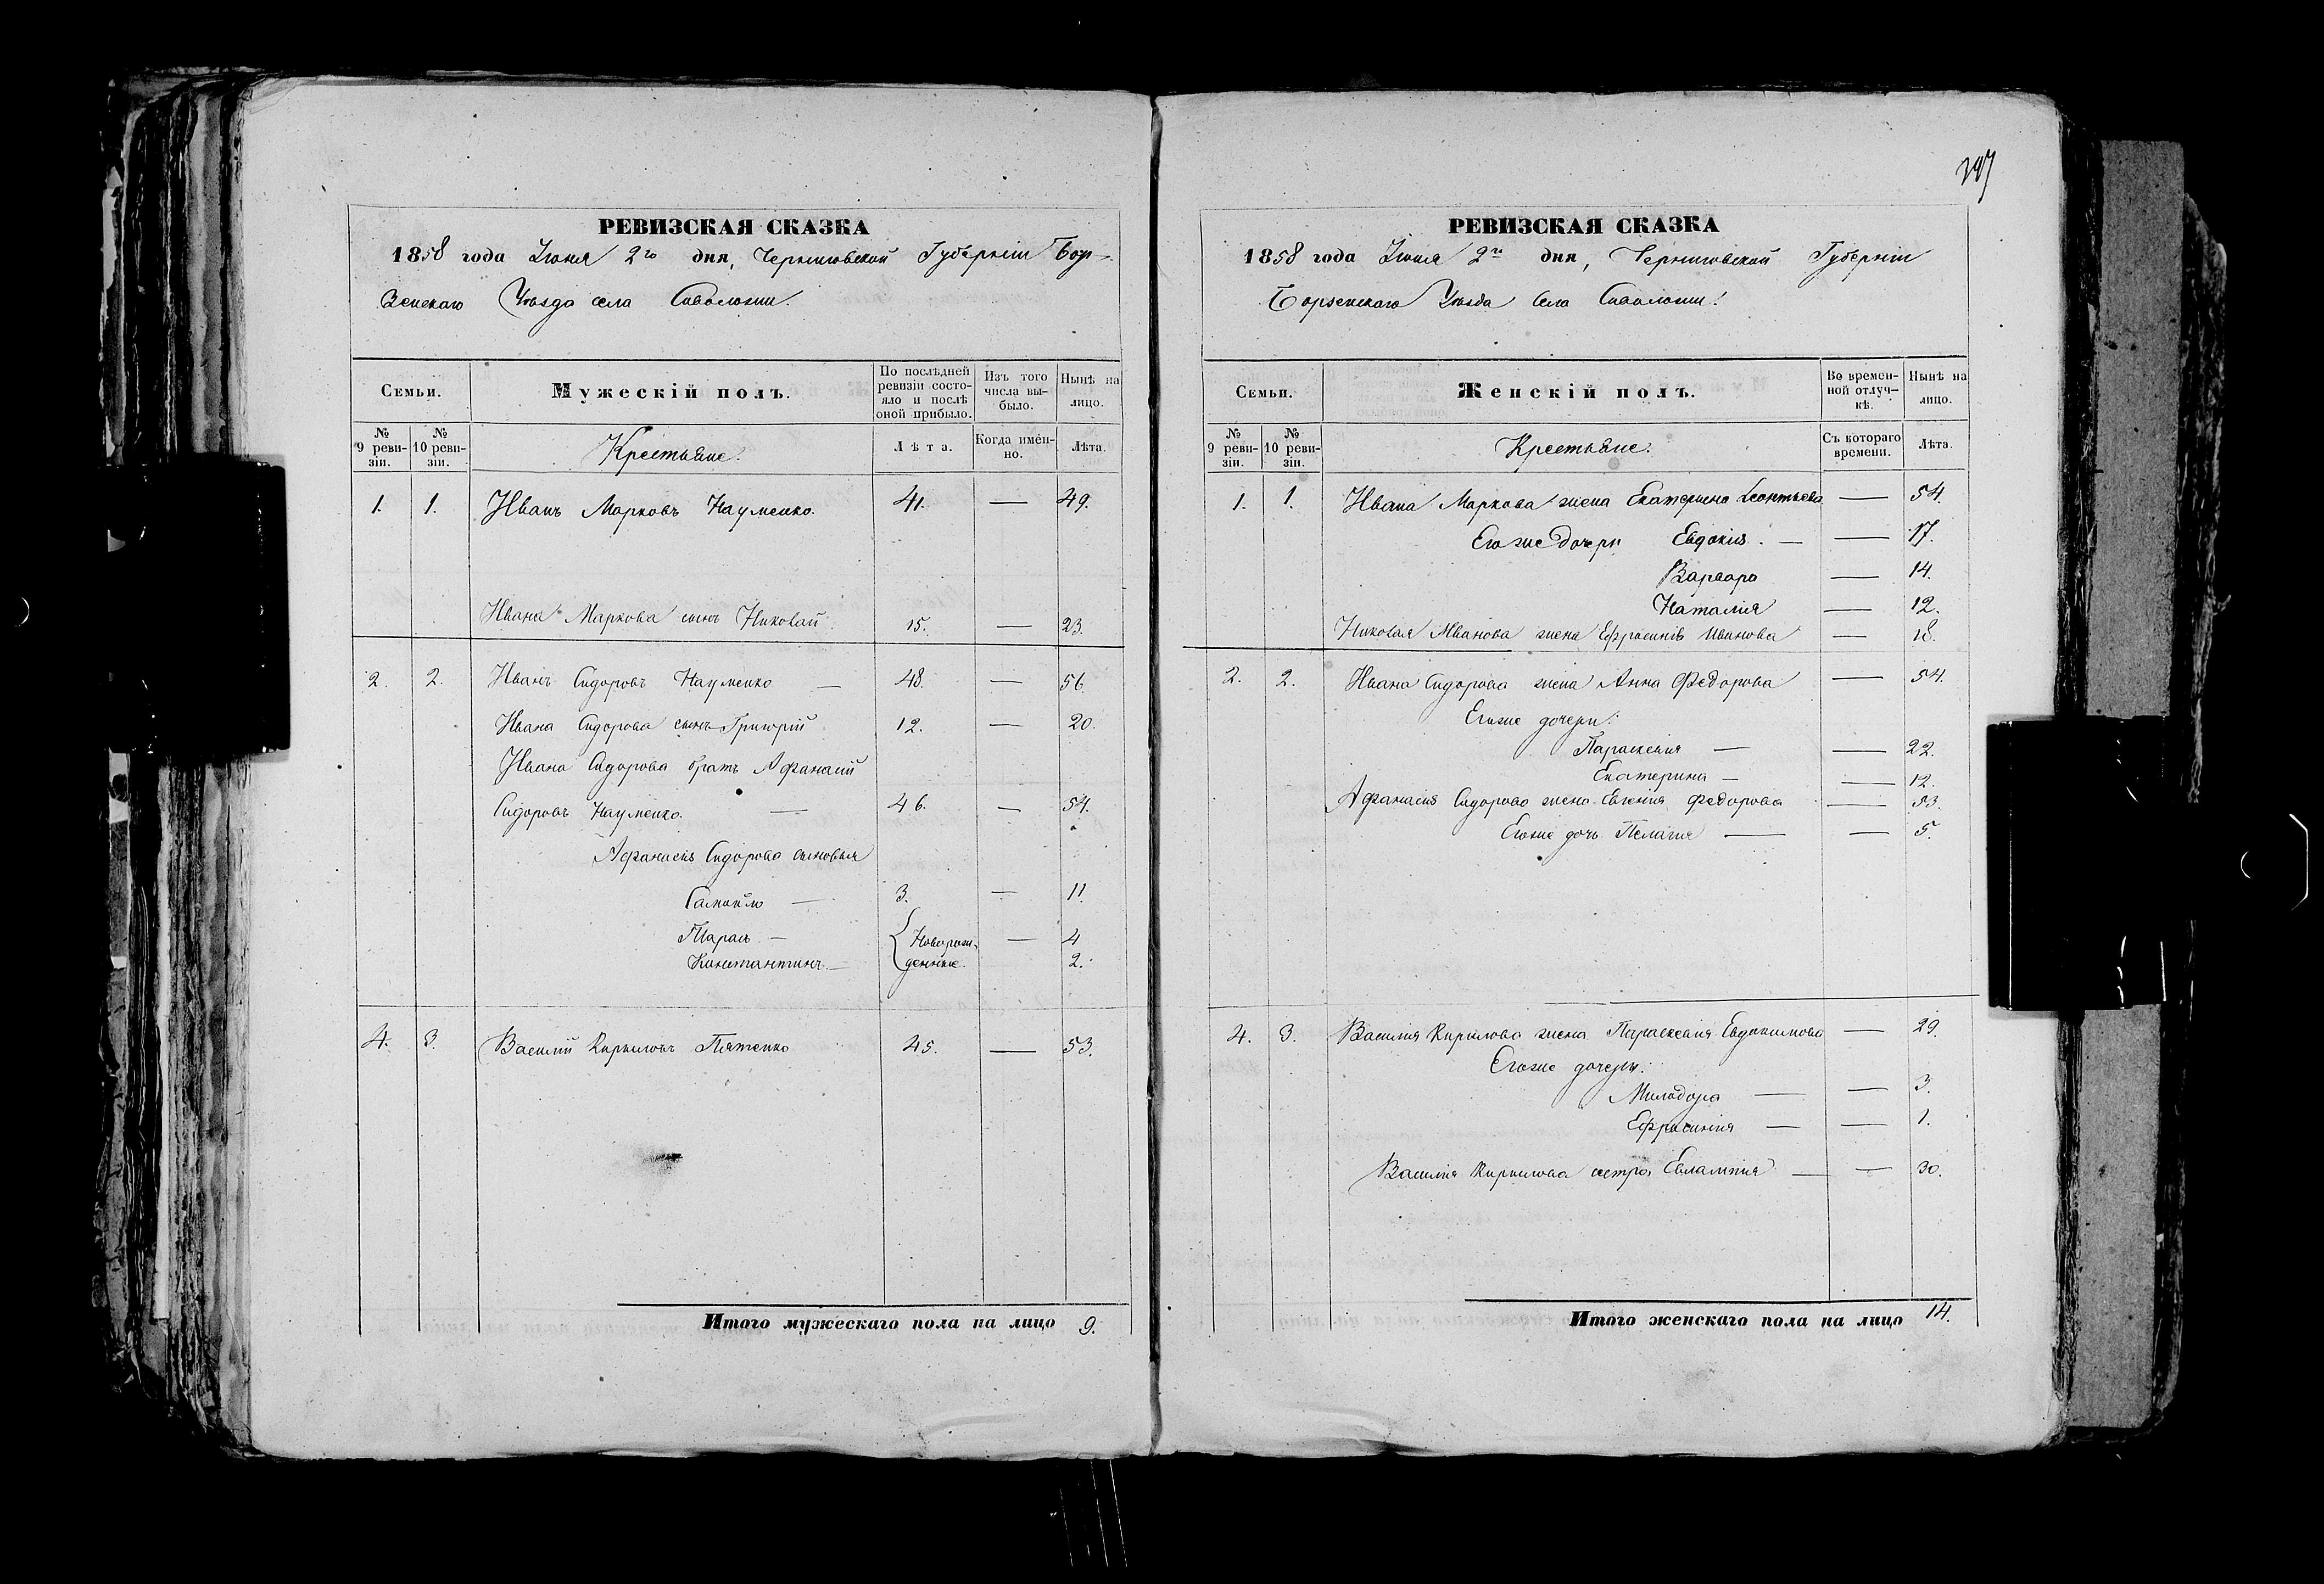 297
РЕВИЗСКАЯ СКАЗКА
1858 года Іюня 2го дня, Черниговской Губерніи Бор-
зенскаго Уѣзда села Сиволожи.
Семьи.
Мужескій полъ.
По послѣдней ревизіи состо-яло и послѣ оной прибыло.
Изъ того числа вы-было.
Нынѣ на лицо.
№ 9 реви-зіи.
№ 10 реви-зіи.
Крестьяне.
Лѣта.
Когда имен-но.
Лѣта.
1. 1. Иванъ Марковъ Науменко. 41. — 49.
Ивана Маркова сынъ Николай 15. — 23.
2. 2. Иванъ Сидоровъ Науменко — 48. — 56.
Ивана Сидорова сынъ Григорій 12. — 20.
Ивана Сидорова братъ Афанасій
Сидоровъ Науменко. — 46. — 54.
Афанасія Сидорова сыновья
Самойло — 3. — 11.
Тарасъ — Новорож- — 4
Константинъ — денные. 2.
4. 3. Василій Кириловъ Пятенко 45. — 53.
Итого мужескаго пола на лицо 9.
РЕВИЗСКАЯ СКАЗКА
1858 года Іюня 2го дня, Черниговской Губерніи
Борзенскаго Уѣзда села Сиволожи.
Семьи.
Женскій полъ.
Во времен-ной отлуч-кѣ.
Нынѣ на лицо.
№ 9 реви-зіи.
№ 10 реви-зіи.
Крестьяне.
Съ котораго времени.
Лѣта.
1. 1. Ивана Маркова жена Екатерина Леонтьева — 54.
Его же дочери Евдокія. — — 17.
Варвара — 14.
Наталія — 12.
Николая Иванова жена Ефросинія Иванова — 18.
2. 2. Ивана Сидорова жена Анна Федорова — 54.
Его же дочери:
Параскевия — — 22.
Екатерина — — 12.
Афанасия Сидорова жена Евгенія Федорова — 53.
Его же дочь Пелагия — — 5.
4. 3. Василія Кирилова жена Параскевия Евдокимова — 29.
Его же дочери:
Милодора — — 3.
Ефросинія — — 1.
Василія Кирилова сестра Евлампия — — 30.
Итого женскаго пола на лицо 14.